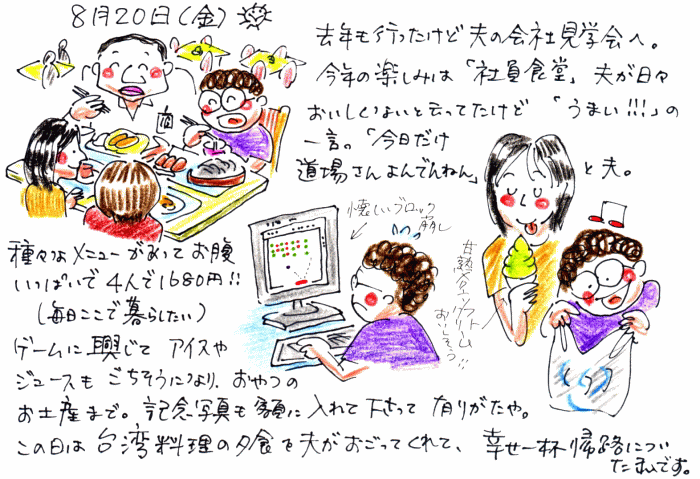 8月20日(金)
去年も行ったけど夫の会社見学会へ。
今年の楽しみは「社員食堂」夫が日々
おいしくないと云ってたけど「うまい!!!」の
一言。「今日だけ
道場さんよんでんねん」と夫。
懐しいブロック
崩し
種々なメニューがあってお腹
いっぱいで4人で1680円!!
(毎日ここで暮らしたい)
ゲームに興じてアイスや
ジュースもごちそうになり、おやつの
お土産まで。記念写真も額に入れて下さって有りがたや。
この日は台湾料理の夕食を夫がおごってくれて、幸せ一杯帰路につい
た私です。
ソフト
クリーム
おいしそう!!